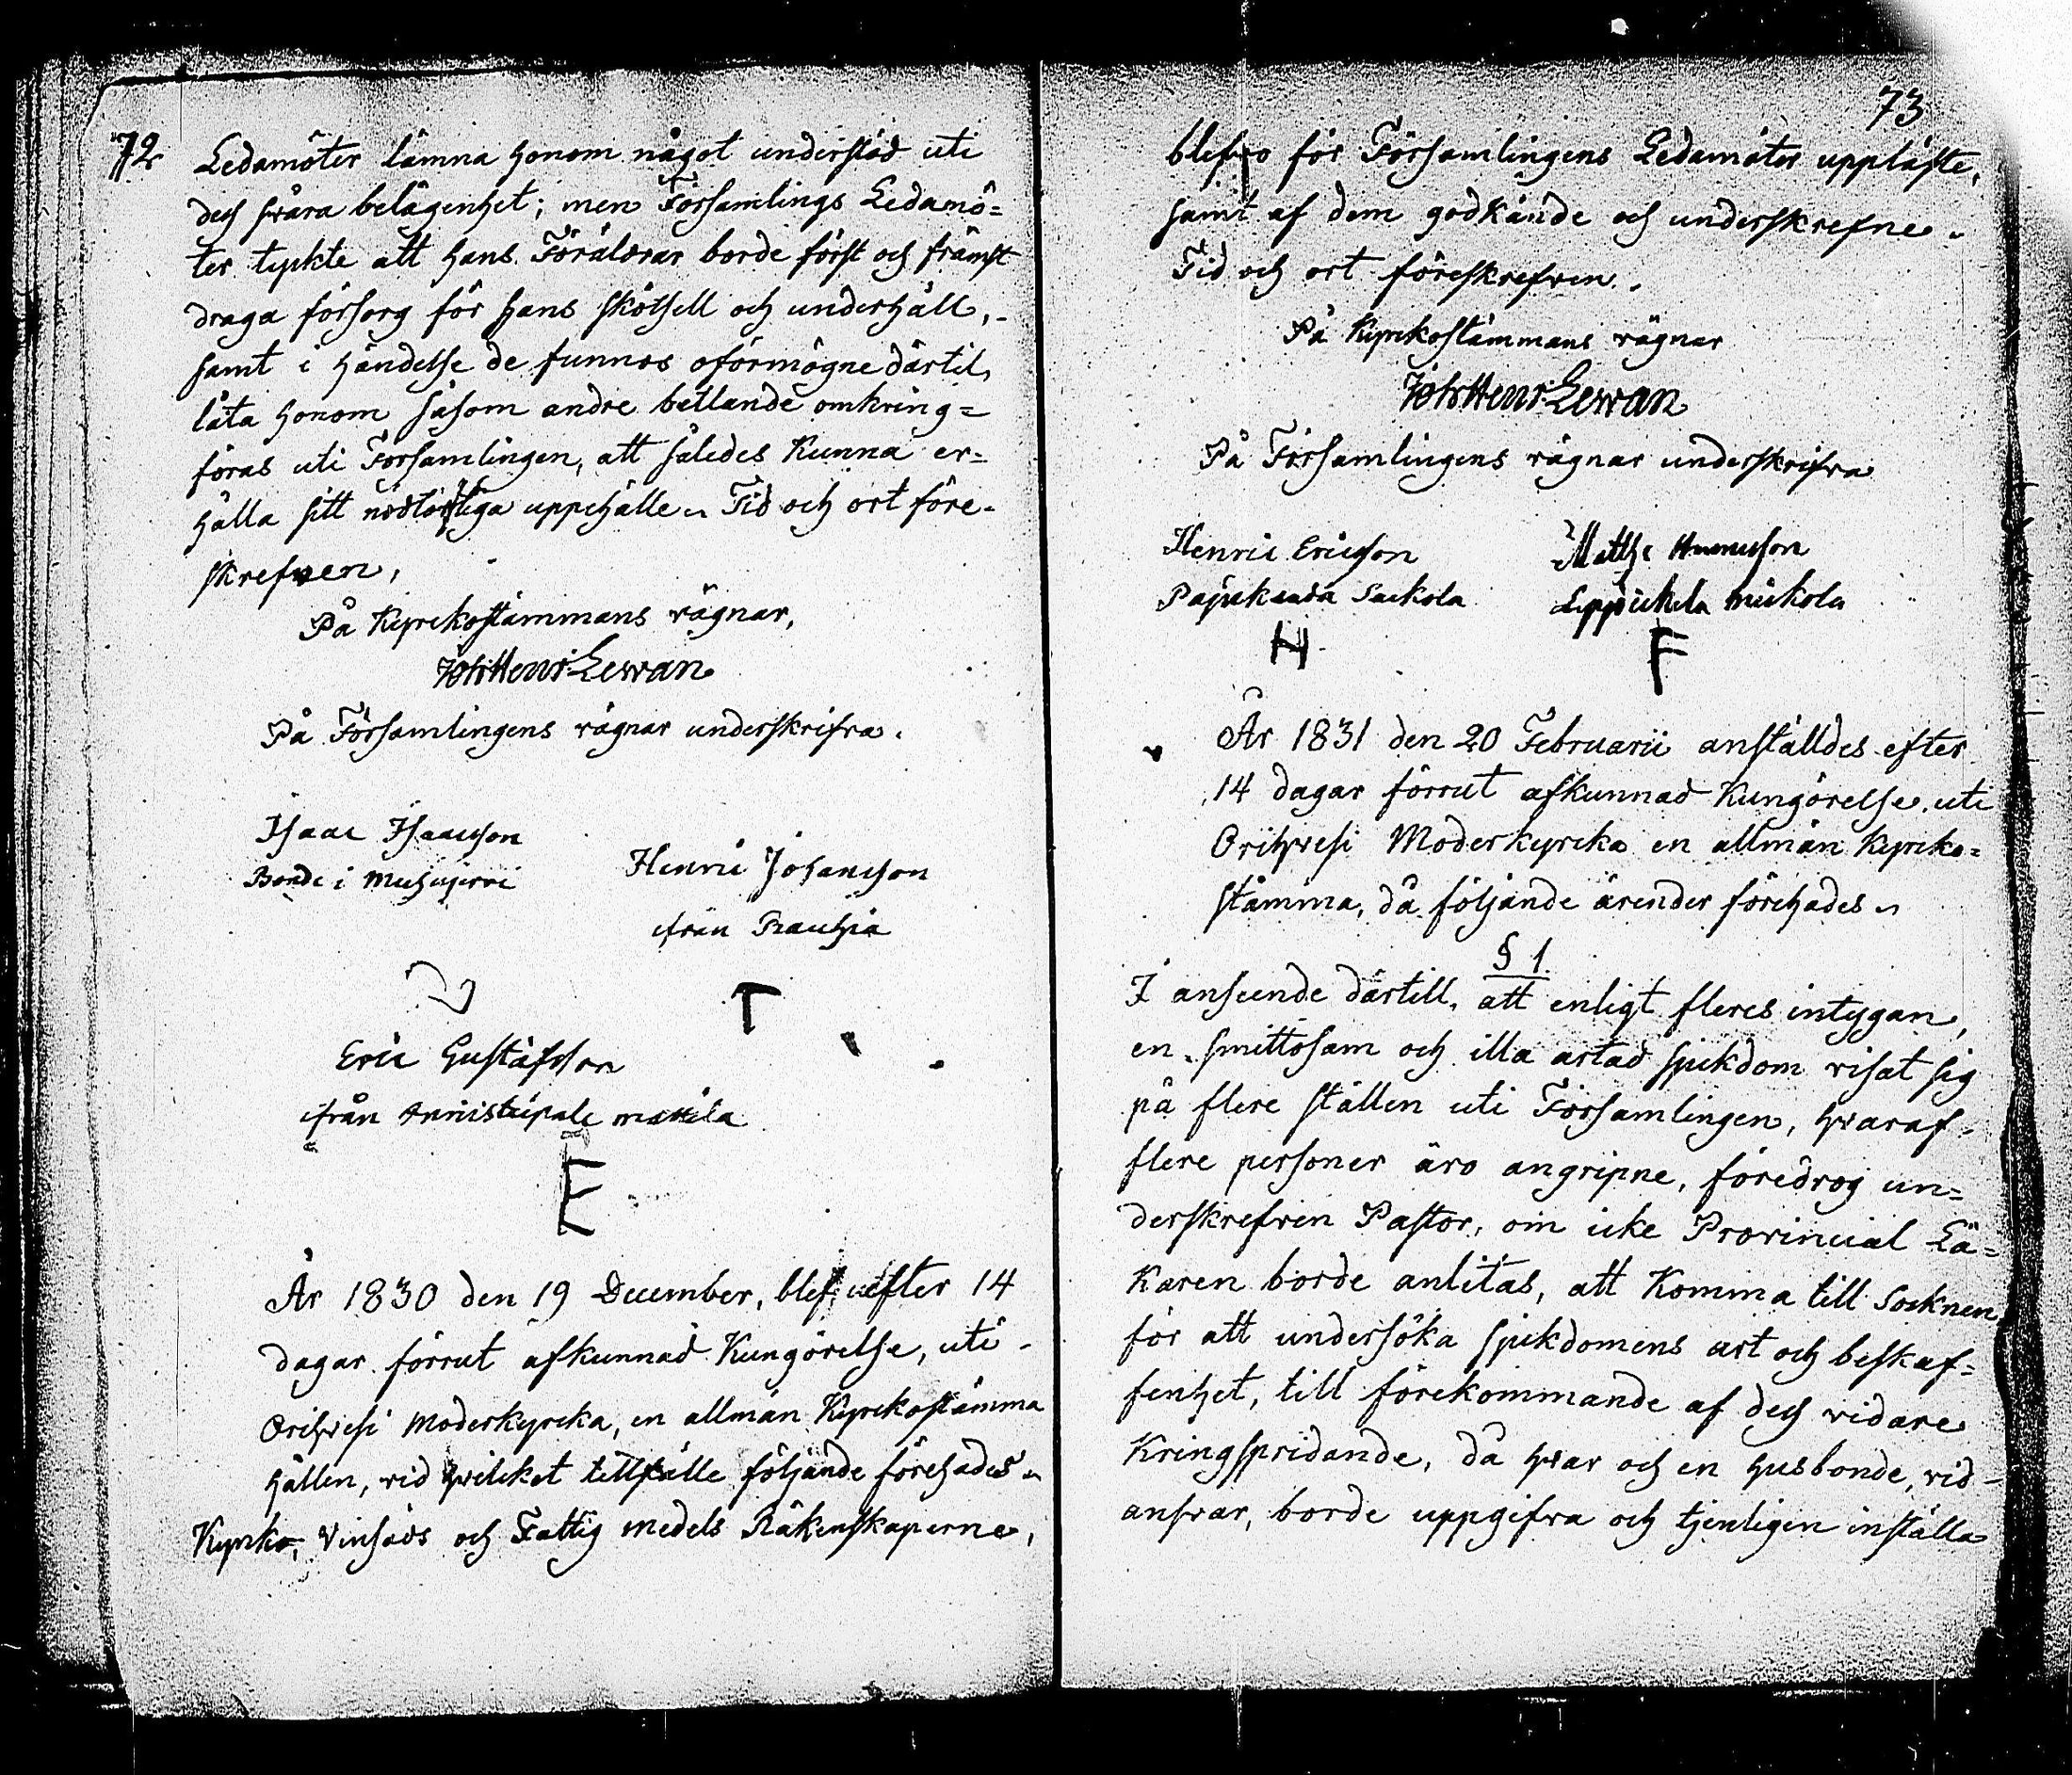 72
Ledamöter lämna honom något understöd uti
dess svåra belägenhet; men Församlings Ledamö=
ter tyckte att hans Föräldrar borde först och främst
draga försorg för hans skötsell och underhåll,
samt i händelse de funnos oförmögne därtil,
låta honom såsom andre bettlande omkring=
föras uti Församlingen, att således kunna er=
hålla sitt nödtorftiga uppehälle. Tid och ort före=
skrefven,
På Kyrckostämmans vägnar,
Joh: Henr: Levan
På Församlingens vägnar underskrifva.
Isaac Isaacsson
Bonde i
Henric Johansson
ifrån
T
Eric Gustafsson
ifrån
E
År 1830 den 19 December, blef efter 14
dagar förrut afkunnad Kungörelse, uti
Orihvesi Moderkyrcka, en allmän Kyrckostämma
hållen, vid hvilcket tillfälle följande förehades.
Kyrcko, Vinsäds och Fattig medels Räkenskaperne,
73
blefvo för Församlingens Ledamöter uppläste,
samt af dem godkände och underskrefne.
Tid och ort föreskrefven.
På Kyrckostämmans vägnar
Joh: Henr: Levan
På Församlingens vägnar underskrifva
Henric Ericsson
Matths
H
F
År 1831 den 20 Februarii anställdes efter
14 dagar förrut afkunnad Kungörelse, uti
Orihvesi Moderkyrcka en allmän Kyrcko=
stämma, då följande ärender förehades.
§ 1.
I anseende därtill, att enligt fleres intygan,
en smittosam och illa artad sjukdom visat sig
på flere ställen uti Församlingen, hvaraf
flere personer äro angripne, föredrog un=
derskrefven Pastor, om icke Provincial Lä=
karen borde anlitas, att komma till Socknen
för att undersöka sjukdomens art och beskaf=
fenhet, till förekommande af dess vidare
kringspridande, då hvar och en husbonde, vid
ansvar, borde uppgifva och tjenligen inställa